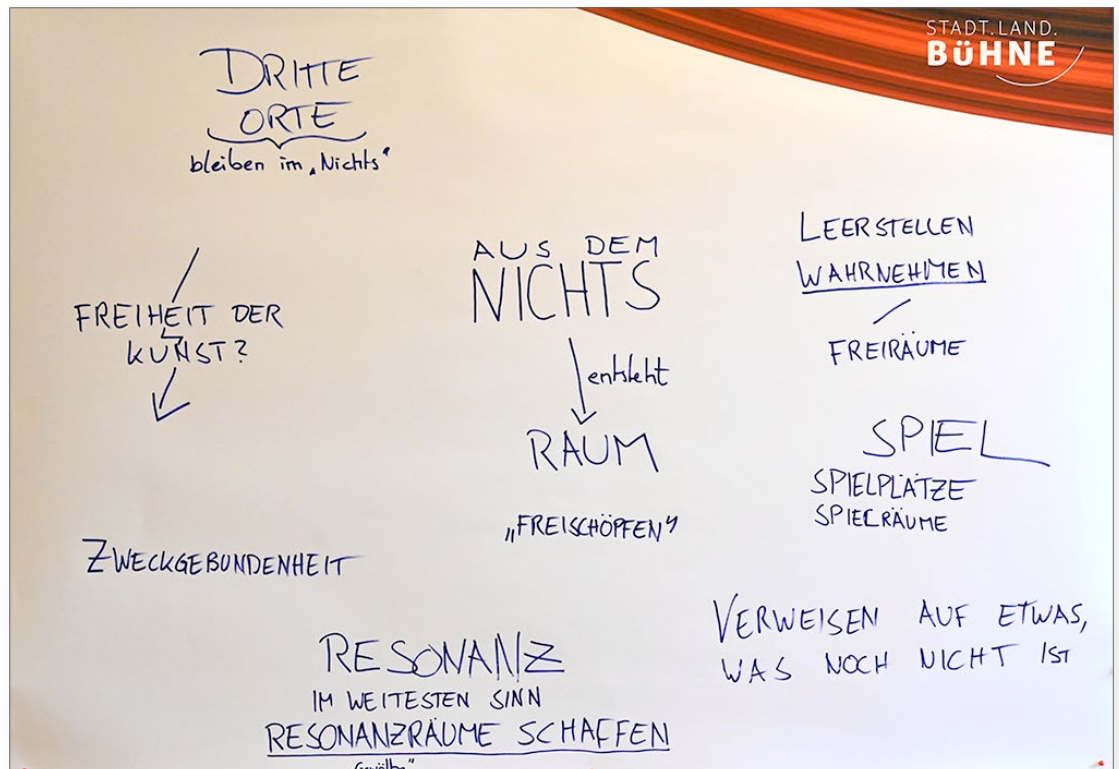 STADT.LAND.
BÜHNE
DRITTE
ORTE
bleiben im „Nichts“
FREIHEIT DER
KUNST?
ZWECKGEBUNDENHEIT
AUS DEM
NICHTS
entsteht
RAUM
„FREISCHÖPFEN“
LEERSTELLEN
WAHRNEHMEN
FREIRÄUME
SPIEL
SPIELPLÄTZE
SPIELRÄUME
VERWEISEN AUF ETWAS,
WAS NOCH NICHT IST
RESONANZ
IM WEITESTEN SINN
RESONANZRÄUME SCHAFFEN